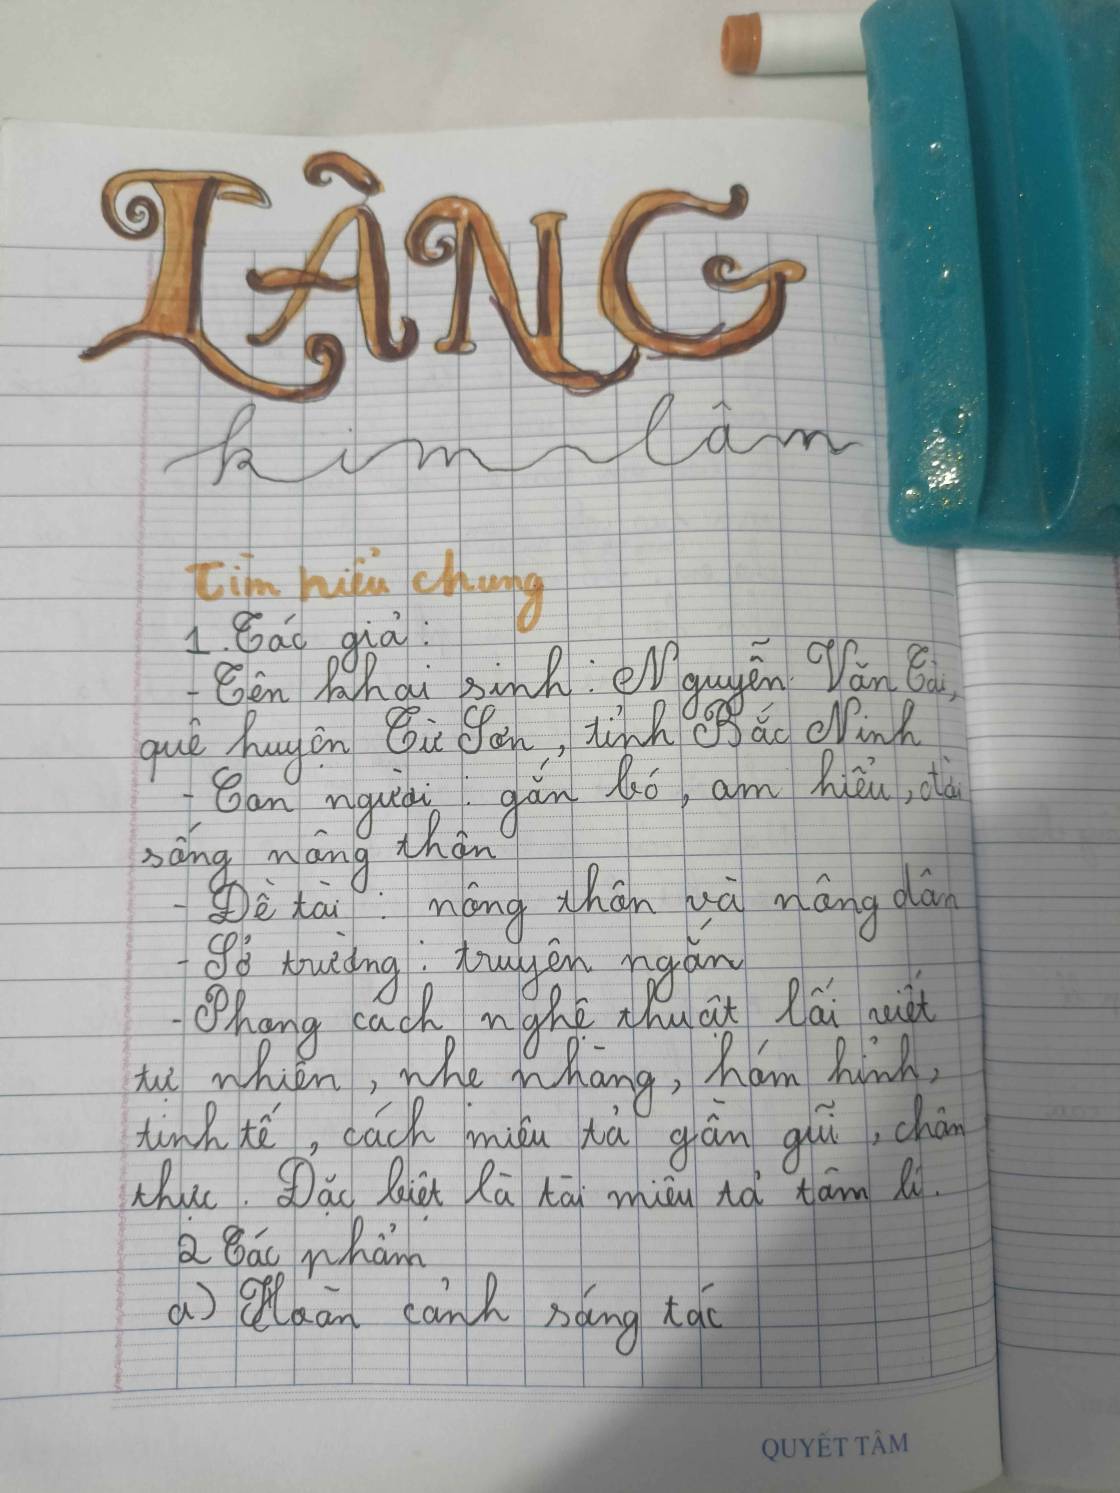 LÀNG
kim lân
Tìm hiểu chung
1. Tác giả:
- Tên khai sinh: Nguyễn Văn Tài,
quê huyện Từ Sơn, tỉnh Bắc Ninh
- Con người: gắn bó, am hiểu, đời
sống nông thôn
- Đề tài: nông thôn và nông dân
- Sở trường: truyện ngắn
- Phong cách nghệ thuật lối viết
tự nhiên, nhẹ nhàng, hóm hỉnh,
tinh tế, cách miêu tả gần gũi, chân
thực. Đặc biệt là tài miêu tả tâm lí.
2 Tác phẩm
a) Hoàn cảnh sáng tác
QUYẾT TÂM